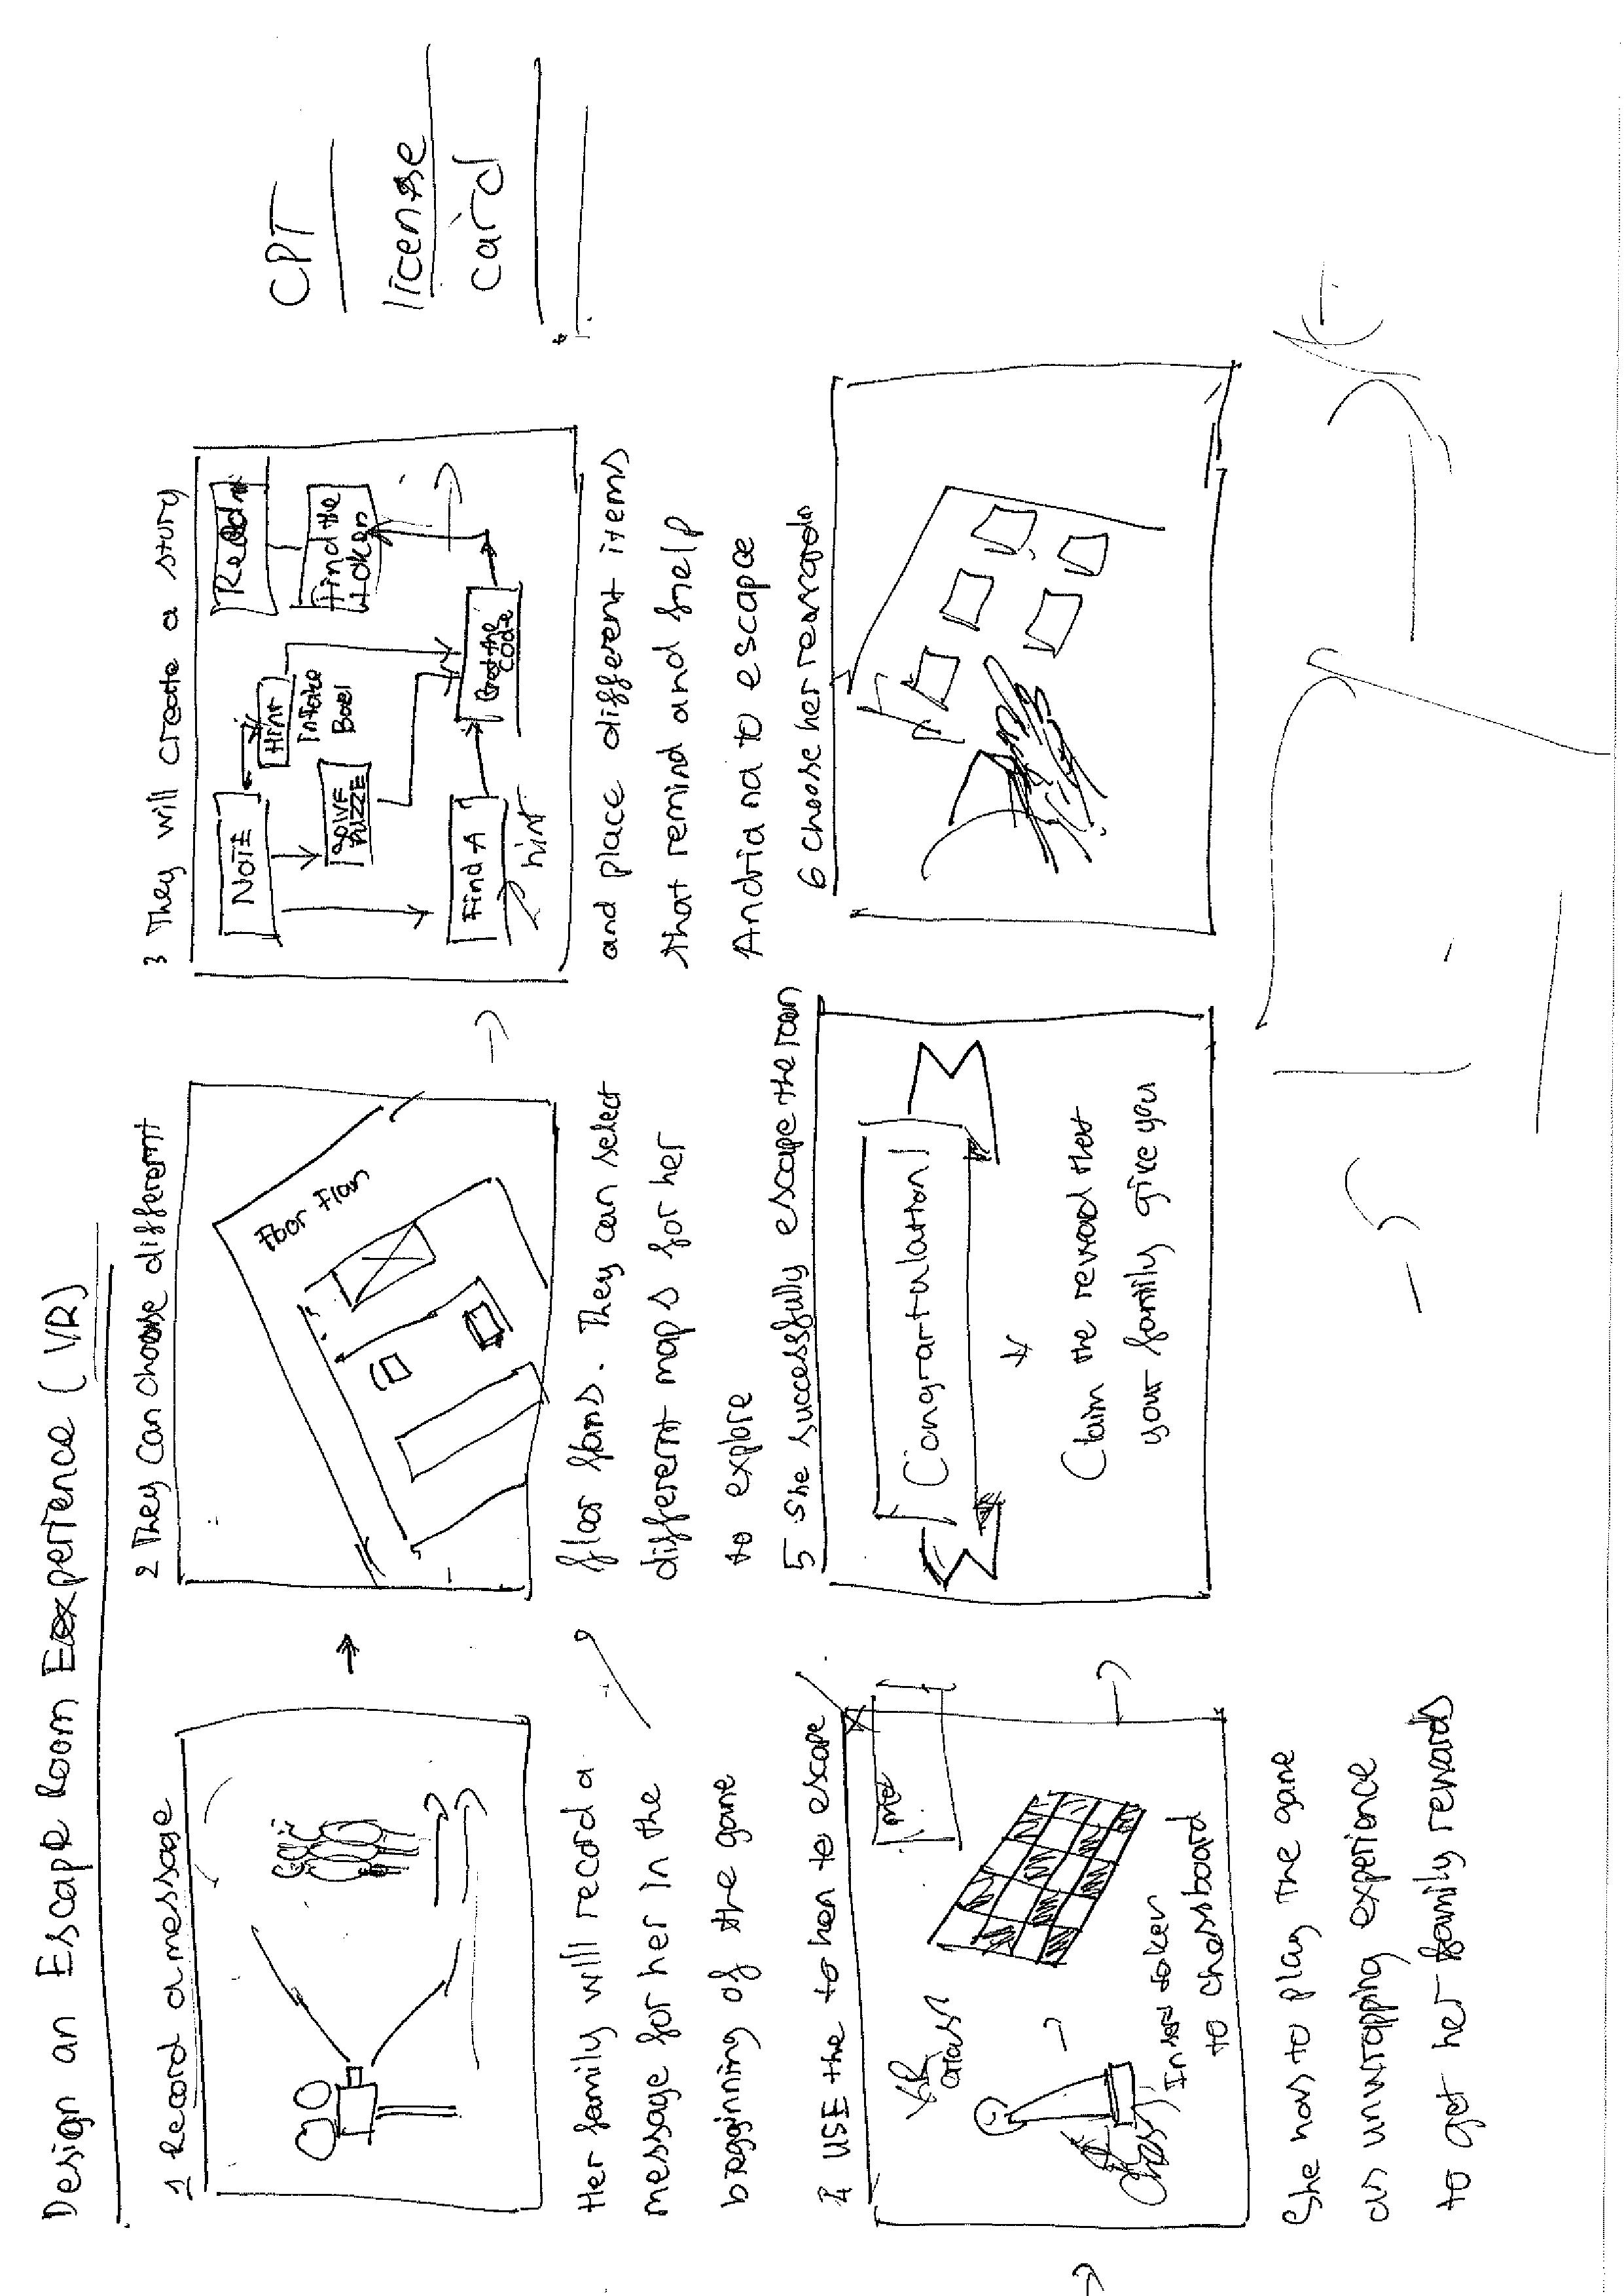 Design an Escape Room Experience (VR)
1 Record a message
Her family will record a
message for her in the
beggining of the game
2 They can choose different
Floor Plan
floor plans. They can select
different maps for her
to explore
3 They will create a story
NOTE
Hint
SOLVE
PUZZE
Find A
hint
Code
Find the
token
and place different items
that remind and help
Andriana to escape
4 USE the token to escape
Chess
Insert token
to chessboard
She has to play the game
as unwrapping experience
to get her family rewards
5 She successfully escape the room
Congrartulation!
Claim the reward that
your family give you
6 choose her rewards
CPT
license
card